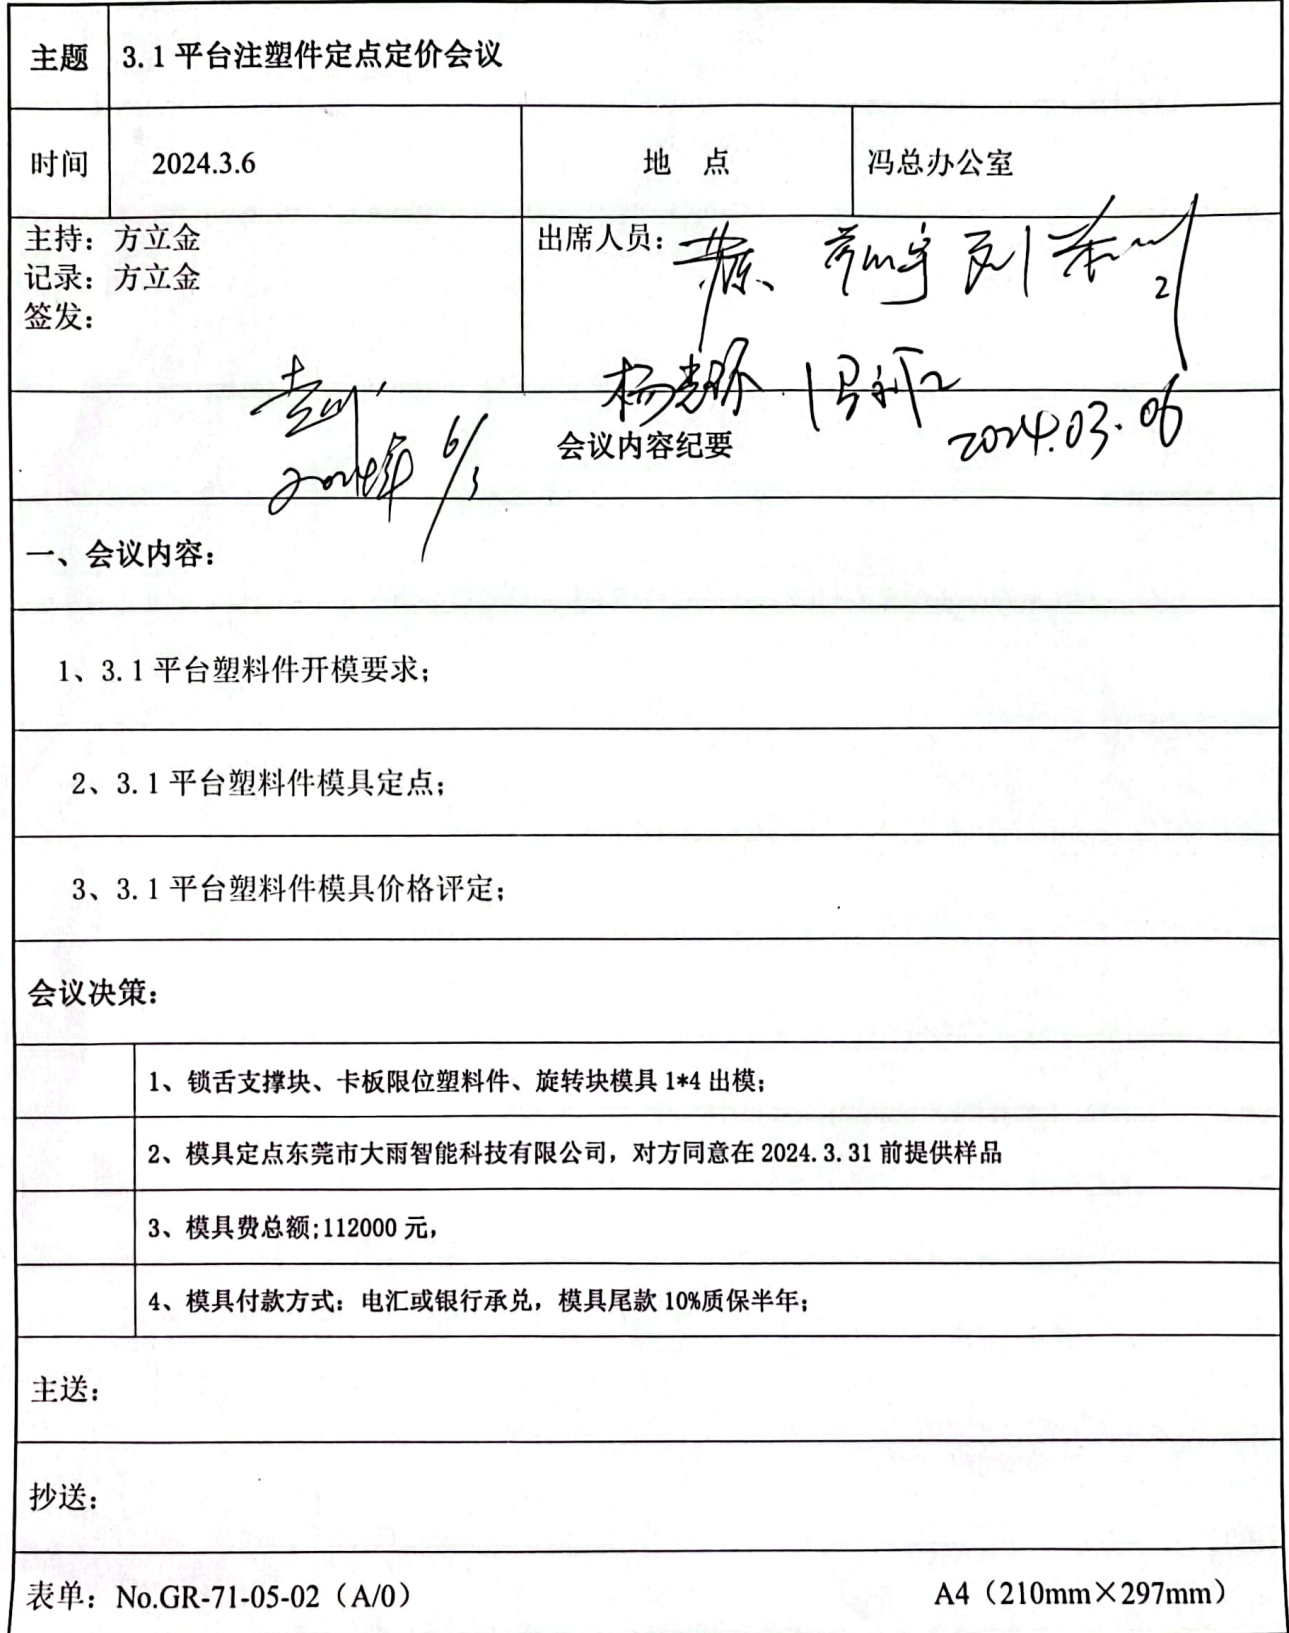 主题 3.1平台注塑件定点定价会议
时间 2024.3.6 地 点 冯总办公室
主持：方立金
记录：方立金
签发：
出席人员：
杨
2024.03.06
2024年 6/3
会议内容纪要
一、会议内容：
1、3.1平台塑料件开模要求；
2、3.1平台塑料件模具定点；
3、3.1平台塑料件模具价格评定；
会议决策：
1、锁舌支撑块、卡板限位塑料件、旋转块模具1*4出模；
2、模具定点东莞市大雨智能科技有限公司，对方同意在2024.3.31前提供样品
3、模具费总额;112000元，
4、模具付款方式：电汇或银行承兑，模具尾款10%质保半年；
主送：
抄送：
表单：No.GR-71-05-02（A/0） A4（210mm×297mm）